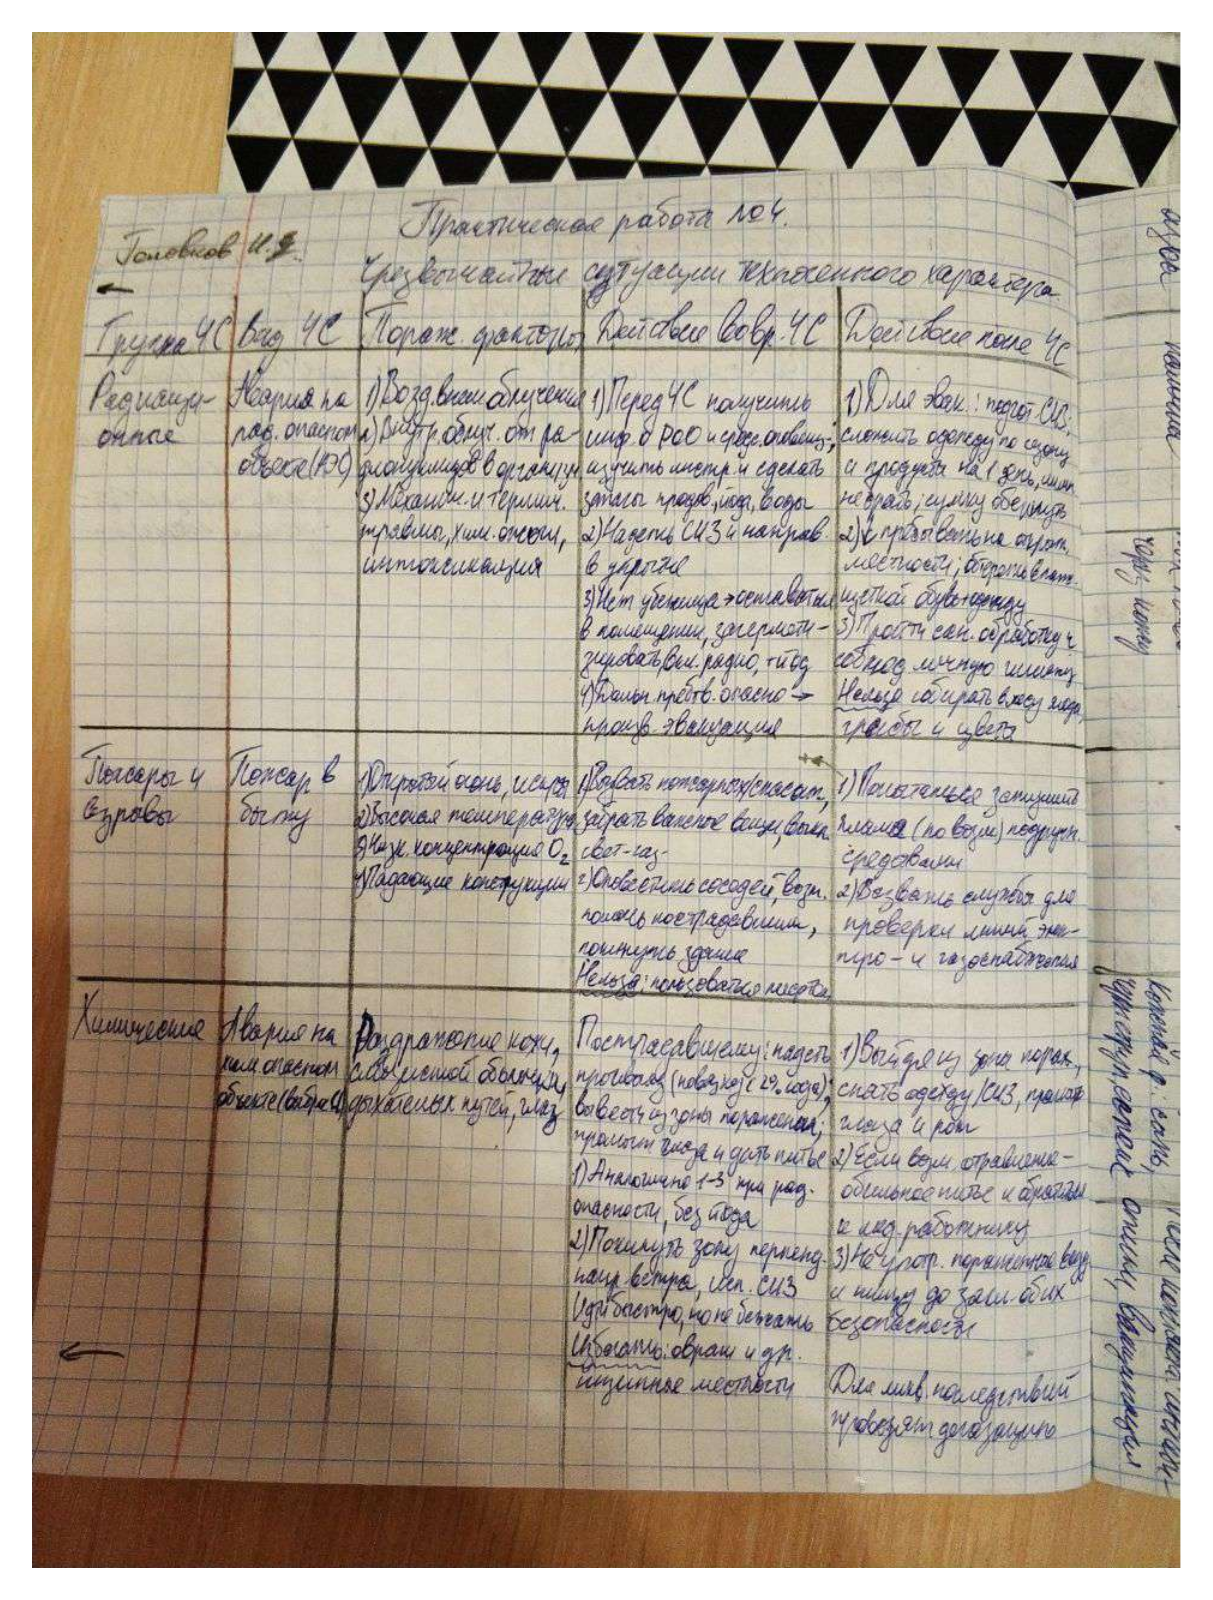 Практическая работа №4.
Головков И.
Чрезвычайные ситуации техногенного характера
Группа ЧС
Вид ЧС
Пораж. факторы
Действие во вр. ЧС
Действие после ЧС
Радиаци-
онные
Авария на
рад. опасном
объекте (АЭС)
1) Возд. внеш. облучения
2) Внутр. облуч. от ра-
дионуклидов в организм
3) Механич. и термич.
травмы, хим. ожоги,
интоксикация
1) Перед ЧС получить
инф. о РОО и средс. оповещ.;
изучить инстр. и сделать
запасы продов., йода, воды
2) Надеть СИЗ и направ.
в укрытие
3) Нет убежища → оставаться
в помещении, загермети-
зировать, вкл. радио, + йод
4) Дальн. пребыв. опасно →
произв. эвакуация
1) Для эвак.: подгот. СИЗ,
сложить одежду по сезону
и продукты на 1 день,
не брать; сумку обернуть
2) пребывать на открыт.
местности;
щеткой обувь + одежду
3) Пройти сан. обработку и
соблюд личную гигиену
Нельзя собирать ягоды,
грибы и цветы
Пожары и
взрывы
Пожар в
быту
1) Открытый огонь, искры
2) Высокая температура
3) Низк. концентрация O₂
4) Падающие конструкции
1) Вызвать пожарных/спасат.,
забрать важные вещи, выкл.
свет-газ-
2) Оповестить соседей, возм.
помочь пострадавшим,
покинуть здание
Нельзя: пользоваться лифтом
1) Попытаться затушить
пламя (по возм) подручн.
средствами
2) Вызвать службы для
проверки линий элек-
тро- и газоснабжения
Химические
Авария на
хим. опасном
объекте (выброс)
Раздражение кожи,
слизистой оболочки,
дыхательных путей, глаз
Пострадавшему: надеть
противогаз (повязку с 2% сода);
вывести из зоны поражения;
промыть глаза и дать питье
1) Аналогично 1-3 при рад.
опасности, без йода
2) Покинуть зону перпенд.
напр ветра, исп. СИЗ
Идти быстро, но не бежать
Избегать: овраги и др.
низинные местности
1) Выйдя из зоны пораж.,
снять одежду/СИЗ, промыть
глаза и рот
2) Если возм. отравление -
обильное питье и обратиться
к мед. работнику
3) Не употр. пораженные воду
и пищу до закл. об их
безопасности
Для ликв. последствий
проводят дегазацию